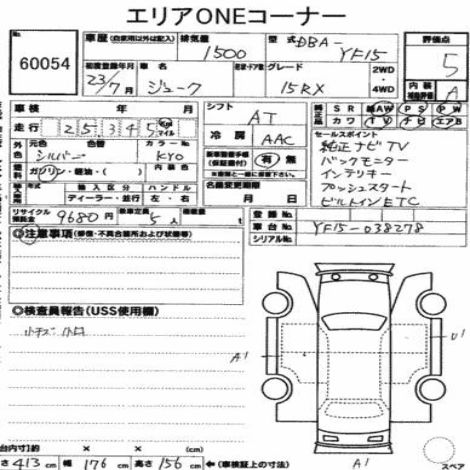 エリアONEコーナー
No. 60054
車歴(自家用以外は記入) 排気量 1500 型式 DBA-YF15 評価点 5
初度登録年月 23/7月 車名 ジューク グレード 15RX 2WD・4WD 内装 A
車検 年 月 シフト AT 純正品 SR 純AW PS PW
走行 25345 マイル カワ TV ナビ エアB
冷房 AAC セールスポイント
外色 元色 シルバー 色替 カラーNo. KY0
純正ナビTV
燃料 ガソリン・軽油・( ) 内装色 (保証書付) 有・無
バックモニター
インテリキー
輸入区分 ハンドル 名義変更期限 月 日
プッシュスタート
ディーラー・並行 左・右
ビルトインETC
リサイクル預託金 9680円 乗車定員 5人 積載量 t 登録No.
◎注意事項(修復・不具合箇所および状態等) 車台No. YF15-038278
シリアルNo.
◎検査員報告(USS使用欄)
小キズ 小凹
A1 U1
A1
寸法)約 × × cm スペア
さ 413 cm 幅 176 cm 高さ 156 cm ←(車検証上の寸法)